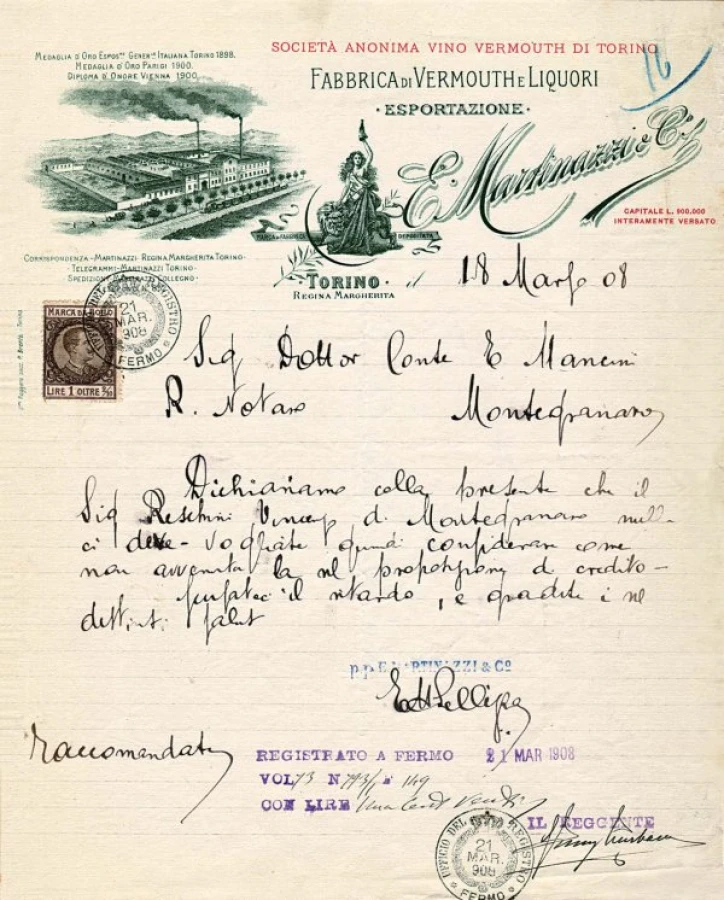 MEDAGLIA D'ORO ESPOS.NE GENER.LE ITALIANA TORINO 1898.
MEDAGLIA D'ORO PARIGI 1900.
DIPLOMA D'ONORE VIENNA 1900
SOCIETÀ ANONIMA VINO VERMOUTH DI TORINO
16
FABBRICA DI VERMOUTH E LIQUORI
· ESPORTAZIONE ·
E. Martinazzi & C.
CAPITALE L. 900.000
INTERAMENTE VERSATO
MARCA DI FABBRICA DEPOSITATA
CORRISPONDENZA - MARTINAZZI - REGINA MARGHERITA TORINO -
- TELEGRAMMI - MARTINAZZI TORINO -
SPEDIZIONI COLLEGNO
- TORINO - il 18 Marzo 08
REGINA MARGHERITA
UFFICIO DEL REGISTRO
21
MAR.
908
FERMO
MARCA DA BOLLO
LIRE 1 OLTRE 2/10
Sig Dottor Conte E Mancini
R. Notaro Montegranaro
Dichiariamo colla presente che il
Sig di Montegranaro nulla
ci deve - vogliate quindi considerare come
non avvenuta la ns/ di credito -
il ritardo, e gradite i ns/
distinti saluti
p.p. E. MARTINAZZI & Cº
Raccomandata
REGISTRATO A FERMO 21 MAR 1908
VOL 73 N 149
CON LIRE Una Cent Venti
IL REGGENTE
UFFICIO DEL REGISTRO
21
MAR.
908
FERMO